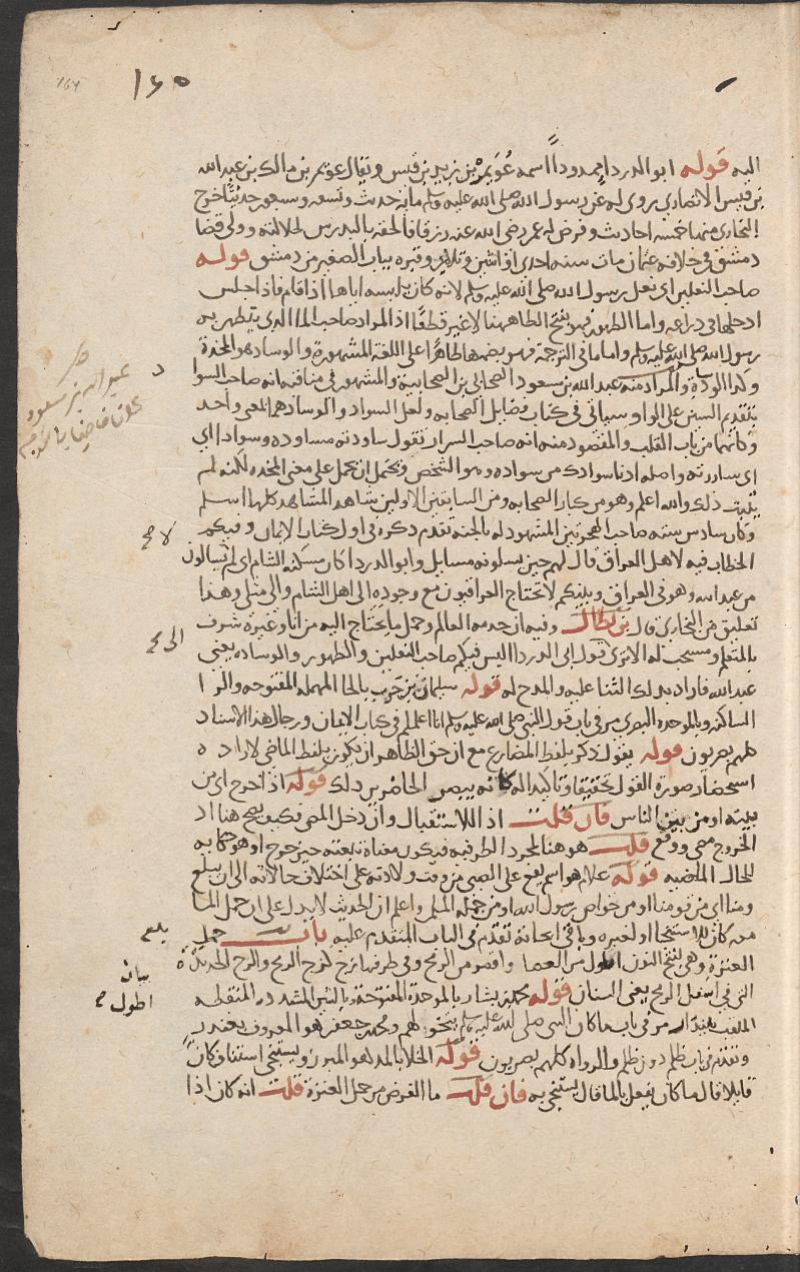 ١٦٥
164
اليه قوله ابو الدرداء ممدودا اسمه عُوَيمر بن زيد بن قيس ويقال عويمر بن مالك بن عبد الله
بن قيس الانصاري روي له عن رسول الله صلى الله عليه وسلم مايه حديث وتسعه وسبعون حديثا خرج
البخاري منها خمسه احاديث وفرض له عمر رضي الله عنه رزقا فالحقه بالبدريين لجلالته وولي قضا
دمشق في خلافه عثمان مات سنه احدى او اثنين وثلاثين وقبره بباب الصغير من دمشق قوله
صاحب النعلين اي نعل رسول الله صلى الله عليه وسلم لانه كان يلبسه اياها اذا قام فاذا جلس
ادخلها في ذراعه واما الطهور فهو بفتح الطا ههنا لا غير قطعا اذ المراد صاحب الما الذي يتطهر به
رسول الله صلى الله عليه وسلم واما ما في الترجمة فهو بضمها ظاهرا على اللغة المشهورة والوساد هو المخدة
وكذا الوسادة والمراد منه عبد الله بن مسعود الصحابي بن الصحابية والمشهور في مناقبه انه صاحب السوا
بتقديم السين على الواو سياتي في كتاب فضايل الصحابه ولعل السواد والوساد هما بمعنى واحد
وكانهما من باب القلب والمقصود منه انه صاحب السرار يقول ساودته مساوده وسوادا اي
اي ساررته واصله ادنا سوادك من سواده وهو الشخص ويحتمل ان يحمل على معنى المخده لكنه لم
يثبت ذلك والله اعلم وهو من كبار الصحابه ومن السابقين الاولين شاهد المشاهد كلها اسلم
وكان سادس سته صاحب الهجرتين المشهود له بالجنه تقدم ذكره في اول كتاب الايمان وفيكم
الخطاب فيه لاهل العراق قال لهم حين يسلونه مسايل وابو الدرداء كان مسكنه الشام اي لم تسالون
من عبد الله وهو في العراق وبينكم لا تحتاج العراقيون مع وجوده الى اهل الشام والى مثلي وهذا
تعليق من البخاري قال بن بطال وفيه ان خدمه العالم وحمل ما يحتاج اليه من انا وغيره شرف
بالمتعلم ومستحب له الا ترى قول ابي الدرداء اليس فيكم صاحب النعلين والطهور والوساده يعني
عبد الله فاراد بذلك الثنا عليه والمدح له قوله سليمان بن حرب بالحا المهمله المفتوحه والرا
الساكنه وبالموحده البصري مر في باب قول النبي صلى الله عليه وسلم انا اعلمكم في كتاب الايمان ورجال هذا الاسناد
كلهم بصريون قوله يقول ذكر بلفظ المضارع مع ان حق الظاهر ان يكون بلفظ الماضي لاراده
استحضار صورة القول تحقيقا وتاكيدا له كانه يبصر الحاضرين ذلك قوله اذا خرج اي من
بيته او من بين الناس فان قلت اذا للاستقبال وان دخل المضي فكيف يصح هنا اذ
الخروج مضى ووقع قلت هو هنا لمجرد الظرفيه فيكون معناه تبعته حين خرج او هو حكايه
للحال الماضيه قوله غلام هو اسم يقع على الصبي من وقت ولادته على اختلاف حالاته الى ان يبلغ
ومنا اي من قومنا او من خواص رسول الله او من جمله المسلمين واعلم ان الحديث لا يدل على ان حمل الما
معه كان للاستنجا او لغيره وباقي ابحاثه تقدم في الباب المتقدم عليه باب حمل
العنزة وهي بفتح النون اطول من العصا واقصر من الرمح وفي طرفها زج كزج الرمح والزج الحديدة
التي في اسفل الرمح يعني السنان قوله محمد بن بشار بالموحدة المفتوحة وبالشين المشدده المنقطه
الملقب ببندار مر في باب ما كان النبي صلى الله عليه وسلم يتخولهم ومحمد بن جعفر هو المعروف بغندر
وتقدم في باب ظلم دون ظلم والرواه كلهم بصريون قوله الخلا بالمد هو المبرز ويستنجي استئناف كان
قايلا قال ما كان يفعل بالما قال يستنجي به فان قلت ما الغرض من حمل العنزة قلت انه كان اذا
عبد الله بن مسعود
لا صح
الى صح
بلغ
بيان
اطول صح